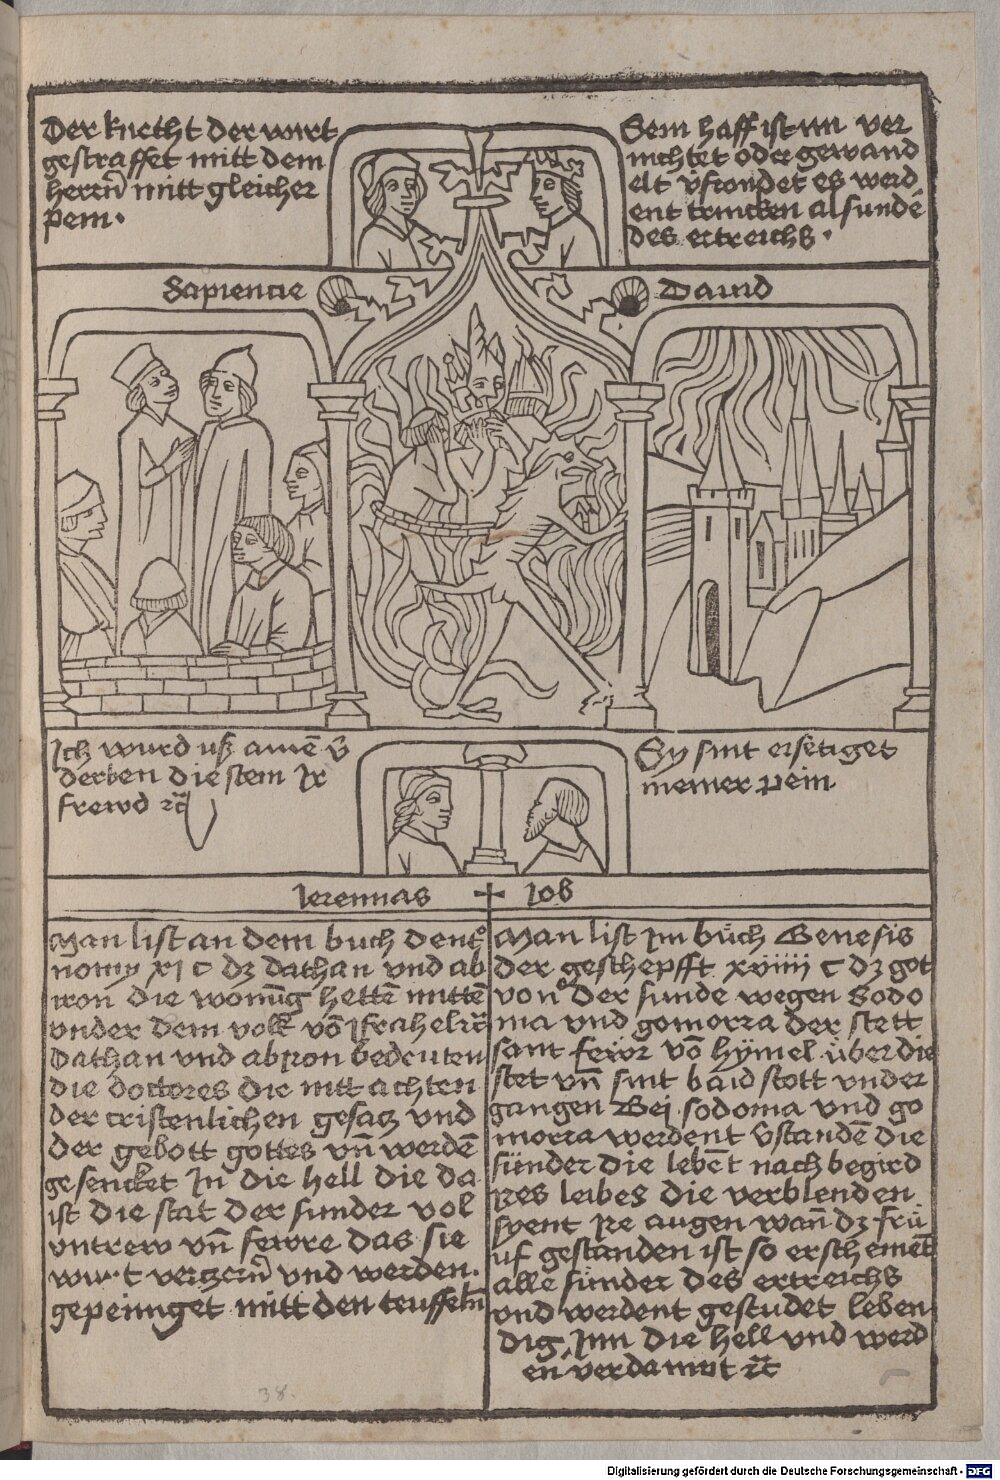 Der knecht der wirt
gestraffet mitt dem
herrn̄ mitt gleicher
pein·
Sein haff ist nn ver
nichtet oder gewand
elt v̄ frondet es werd
ent trincken al sunde
des ertreichs·
Sapiencie
Dauid
Ich wurd uß amē v̄
derben die stem Ir
frewd ꝛc̄
Sy sint ersetiget
meiner pein·
Ieremias
Iob
Man list an dem buch deut°
nomy xi c dz dathan vnd ab
iron die wonūg hettē mittē
vnder dem volk vō Israhel ꝛc̄
Dathan vnd abiron bedeuten
die doctores die nitt achten
der cristenlichen gesacz vnd
der gebott gottes vn̄ werdē
gesencket In die hell die da
ist die stat der sunder vol
vntrew vn̄ fewre das sie
vnd werden·
gepeiniget mitt den teuffeln̄
Man list Im bůch Genesis
der geschepfft xviiii c dz got
von der sunde wegen Sodo
ma vnd gomorra der stett
sant fewr vō hymel über die
stet vn̄ sint baid stott vnder
gangen Bei sodoma vnd go
morra werdent v̄standē die
sünder die lebēt nach begird
Ires leibes die verblenden
syent Ire augen wan̄ dz frü
uf gestanden ist so erschemēt
alle sünder des ertreichs
vnd werdent gestudet leben
dig Inn die hell vnd werd
en verdamnt ꝛc̄
38.
Digitalisierung gefördert durch die Deutsche Forschungsgemeinschaft - DFG